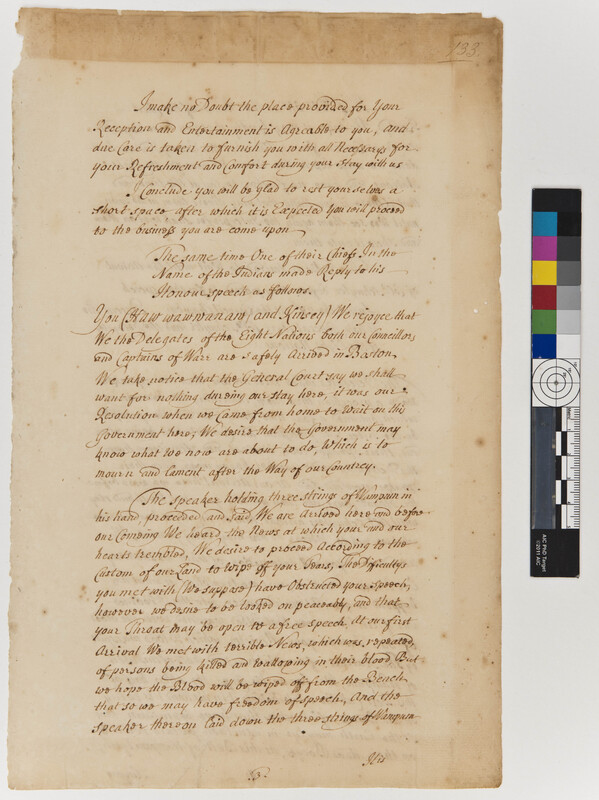 133.
I make no Doubt the place provided for Your
Reception and Entertainment is Agreable to you, and
due Care is taken to furnish you with all Necessarys for
your Refreshment and Comfort during your Stay with us
I Conclude you will be glad to rest yourselves a
short space after which it is Expected You will proceed
to the business you are come upon
The same time One of their Chiefs In the
Name of the Indians made Reply to his
Honour speech as follows.
You and Kinsey) We rejoyce that
We the Delegates of the Eight Nations both our Councillors
and Captains of Warr are safely Arrived in Boston
We take notice that the General Court say we shall
want for nothing dureing our stay here, it was our
Resolution when we Came from home to wait on the
Government here; We desire that the Government may
know what we now are about to do, Which is to
mourn and lament after the Way of our Countrey.
The speaker holding three strings of Wampum in
his hand, proceeded and said, We are Arrived here and before
our Comeing We heard the News at which your and our
hearts trembled, We desire to proceed According to the
Custom of our Land to wipe off your Tears; The Difficultys
you met with (We suppose) have Obstructed your Speech,
however we desire to be looked on peaceably, and that
your Throat may be open to a free speech. At our first
Arrival We met with terrible News, which was, repeated
of persons being killed and walloping in their blood, But
we hope the Blood will be wiped off from the Bench
that so we may have freedom of speech, And the
speaker thereon laid down the three strings of Wampum
His
AIC PhD Target
©2011 AIC